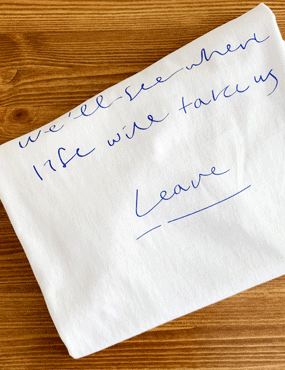 we'll see where
life will take us
Leave